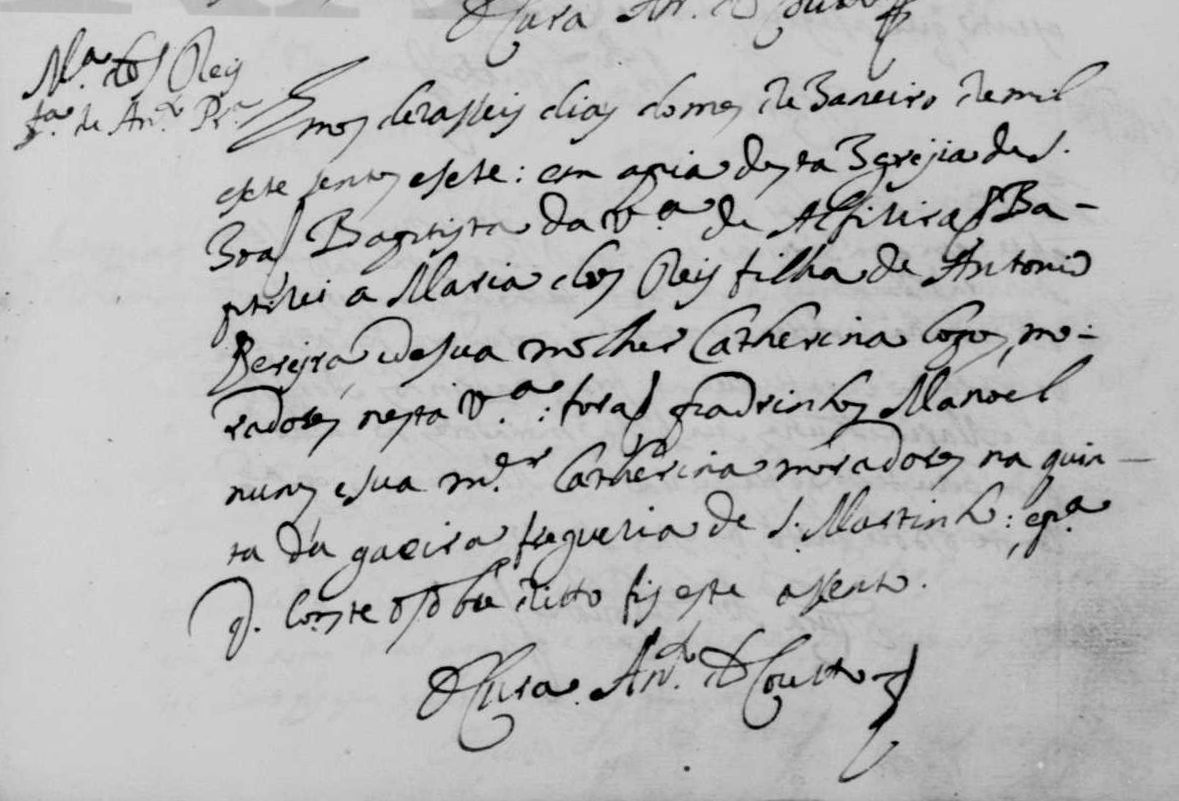 O Cura An.to do Couto
M.a dos Reis
f.a de An.to Pr.a
Em os dezasseis dias do mes de Janeiro de mil
e sete sentos e sete: em a pia desta Igrejia de S.
Joaõ Baptista da V.a de Alfeiziraõ Ba-
ptizei a Maria dos Reis filha de Antonio
Pereira e de sua molher Catherina Cozos, mo-
radores nesta V.a: foraõ padrinhos Manoel
nunes e sua m.er Catherina moradores na quin-
ta da gaeira freguezia de S. Martinho: e p.a
q. Conste o sobre ditto fis este assento.
O Cura An.to do Couto